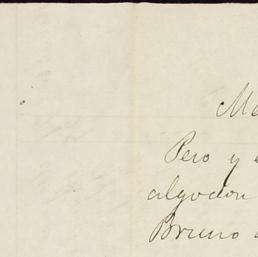 Me
Pero y e
algodon
Bruno a